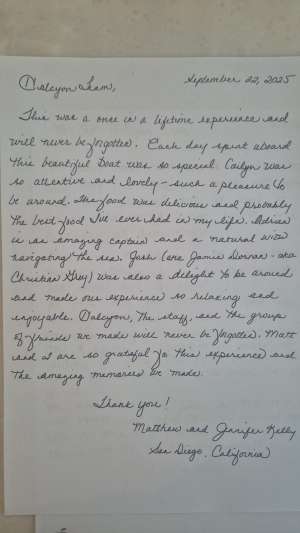 Dalcyon Team,
September 22, 2025
This was a once in a lifetime experience and
will never be forgotten. Each day spent aboard
this beautiful boat was so special. Cailyn was
so attentive and lovely - such a pleasure to
be around. The food was delicious and probably
the best food I've ever had in my life. Adrian
is an amazing captain and a natural with
navigating the sea. Josh (one Jamie Dornan - aka
Christian Grey) was also a delight to be around
and made our experience so relaxing and
enjoyable. Dalcyon, the staff, and the group
of friends we made will never be forgotten. Matt
and I are so grateful for this experience and
the amazing memories we made.
Thank you!
Matthew and Jennifer Kelly
San Diego, California